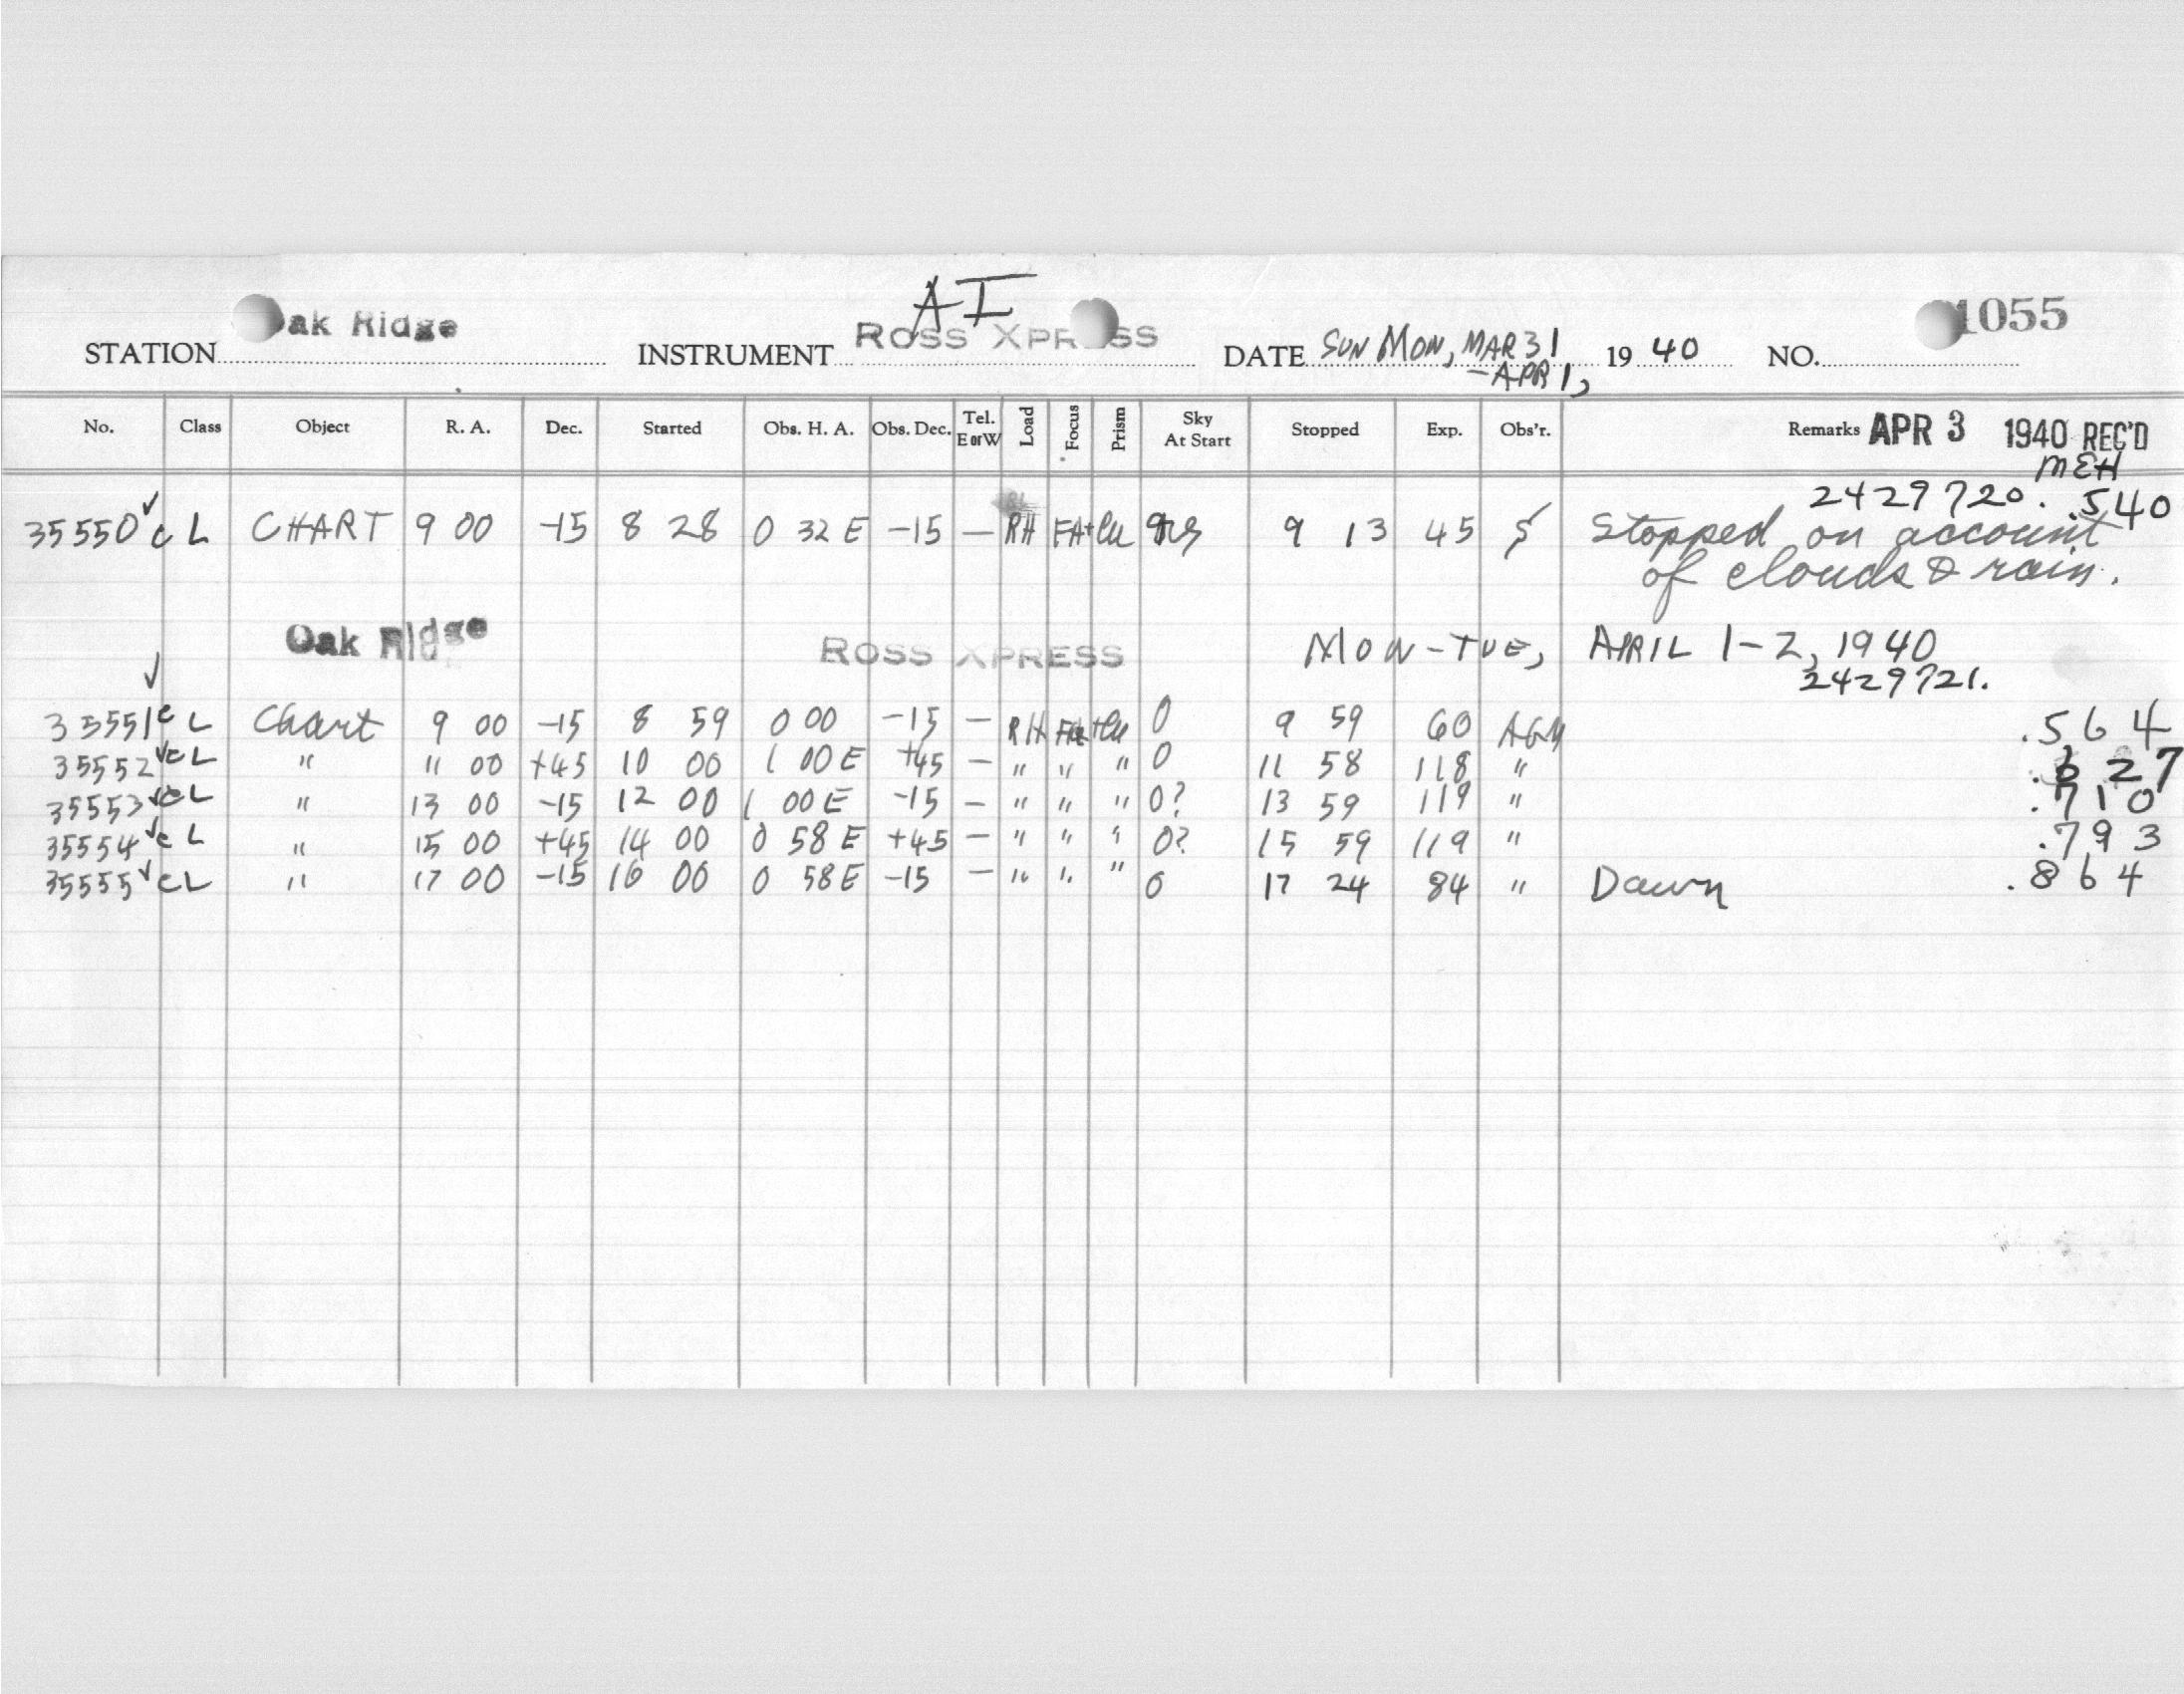 AI
Oak Ridge ROSS XPRESS 1055
STATION INSTRUMENT DATE SUN MON, MAR 31 19 40 NO.
-APR 1,
No. Class Object R. A. Dec. Started Obs. H. A. Obs. Dec. Tel. E or W Load Focus Prism Sky At Start Stopped Exp. Obs'r. Remarks APR 3 1940 REC'D
MEH
2429720. .540
35550 ✓ c L CHART 9 00 -15 8 28 0 32 E -15 — RH FA+Cu 9 13 45 S Stopped on account
of clouds & rain.
Oak Ridge ROSS XPRESS MON-TUE, APRIL 1-2, 1940
✓ 2429721.
35551 c L Chart 9 00 -15 8 59 0 00 -15 — RH +Cu 0 9 59 60 AGM .564
35552 ✓ c L " 11 00 +45 10 00 1 00 E +45 — " " " 0 11 58 118 " .627
35553 ✓ c L " 13 00 -15 12 00 1 00 E -15 — " " " 0? 13 59 119 " .710
35554 ✓ c L " 15 00 +45 14 00 0 58 E +45 — " " " 0? 15 59 119 " .793
35555 ✓ c L " 17 00 -15 16 00 0 58 E -15 — " " " 0 17 24 84 " Dawn .864